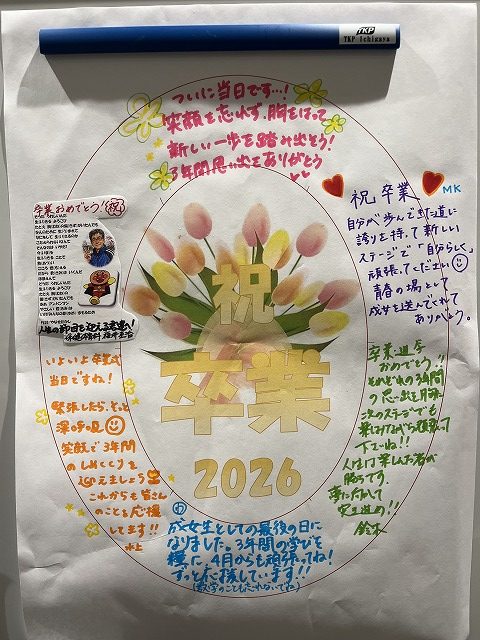 TKP
TKP Ichigaya
ついに当日です…!
笑顔を忘れず、胸をはって
新しい一歩を踏み出そう!
3年間思い出をありがとう
卒業おめでとう!祝
祝 卒業
MK
自分が歩んできた道に
誇りを持って新しい
ステージで「自分らしく」
頑張ってください
青春の場として
成女を選んでくれて
ありがとう。
祝
卒業
2026
人生の節目を迎える君達へ
いよいよ卒業式
当日ですね!
緊張したら、そっと
深呼吸
笑顔で3年間の
しめくくりを
迎えましょう
これからも皆さん
のことを応援
してます!!
水上
卒業迄今
おめでとう!!
それぞれの3年間
の思い出を胸に
次のステージでも
頑張って
下さいね!!
人生は楽しんだ者が
勝ちです。
鈴木
成女生としての最後の日に
なりました。3年間の学びを
糧に4月からも頑張ってね!
ずっと応援しています!!